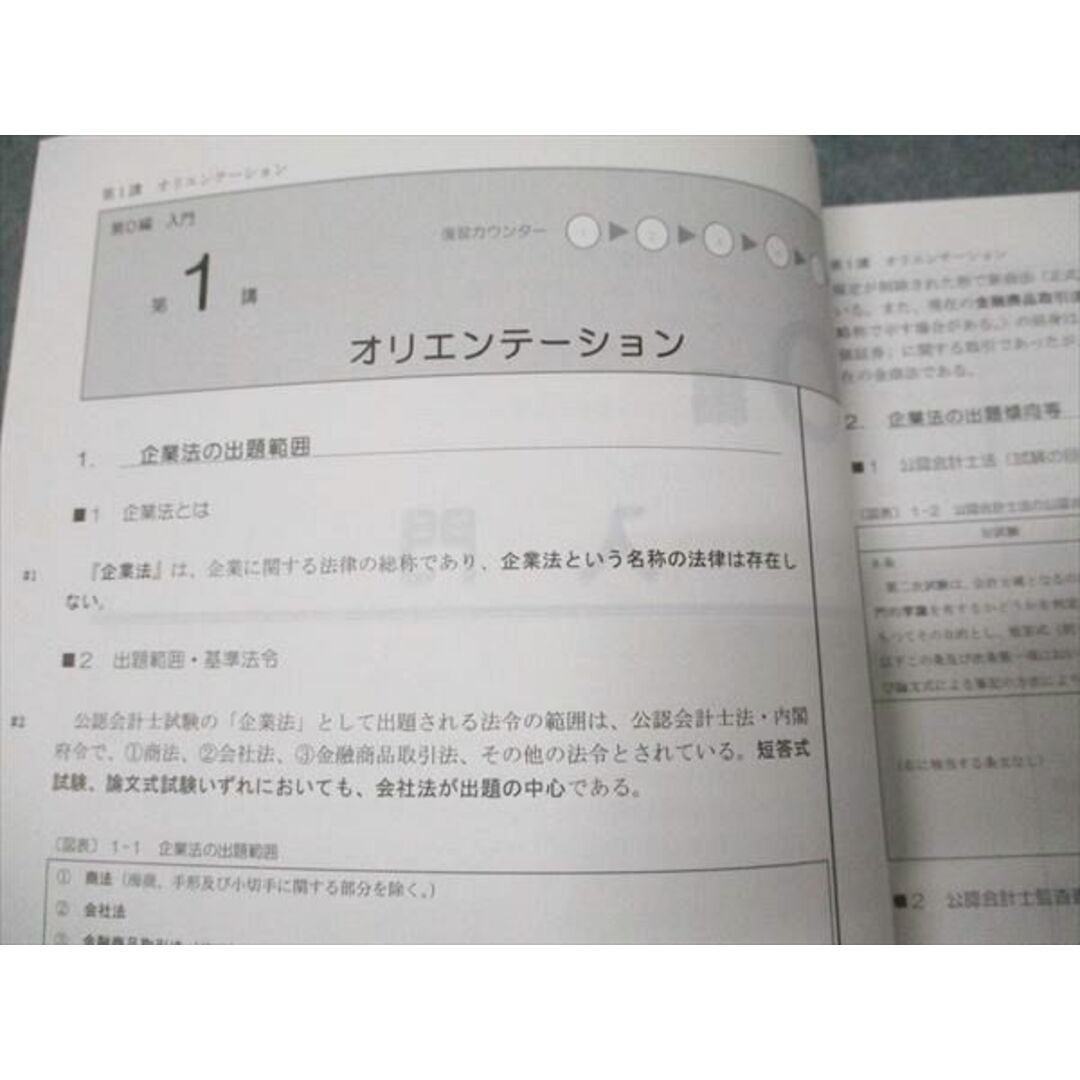 第1講 オリエンテーション
第0編 入門
復習カウンター
第 1 講
オリエンテーション
1. 企業法の出題範囲
■1 企業法とは
#1 『企業法』は、企業に関する法律の総称であり、企業法という名称の法律は存在し
ない。
■2 出題範囲・基準法令
#2 公認会計士試験の「企業法」として出題される法令の範囲は、公認会計士法・内閣
府令で、①商法、②会社法、③金融商品取引法、その他の法令とされている。短答式
試験、論文式試験いずれにおいても、会社法が出題の中心である。
〔図表〕1-1 企業法の出題範囲
① 商法（海商、手形及び小切手に関する部分を除く。）
② 会社法
③ 金融商品取引法
第1講 オリエンテーション
いる。また、現在の金融商品取引法
略称で示す場合がある。）の前身は
在の金商法である。
2. 企業法の出題傾向等
■1 公認会計士法（試験の目
〔図表〕1-2 公認会計士法の
第二次試験は、会計士補となるの
門的学識を有するかどうかを判定
もってその目的とし、短答式
（右に相当する条文なし）
■2 公認会計士監査審